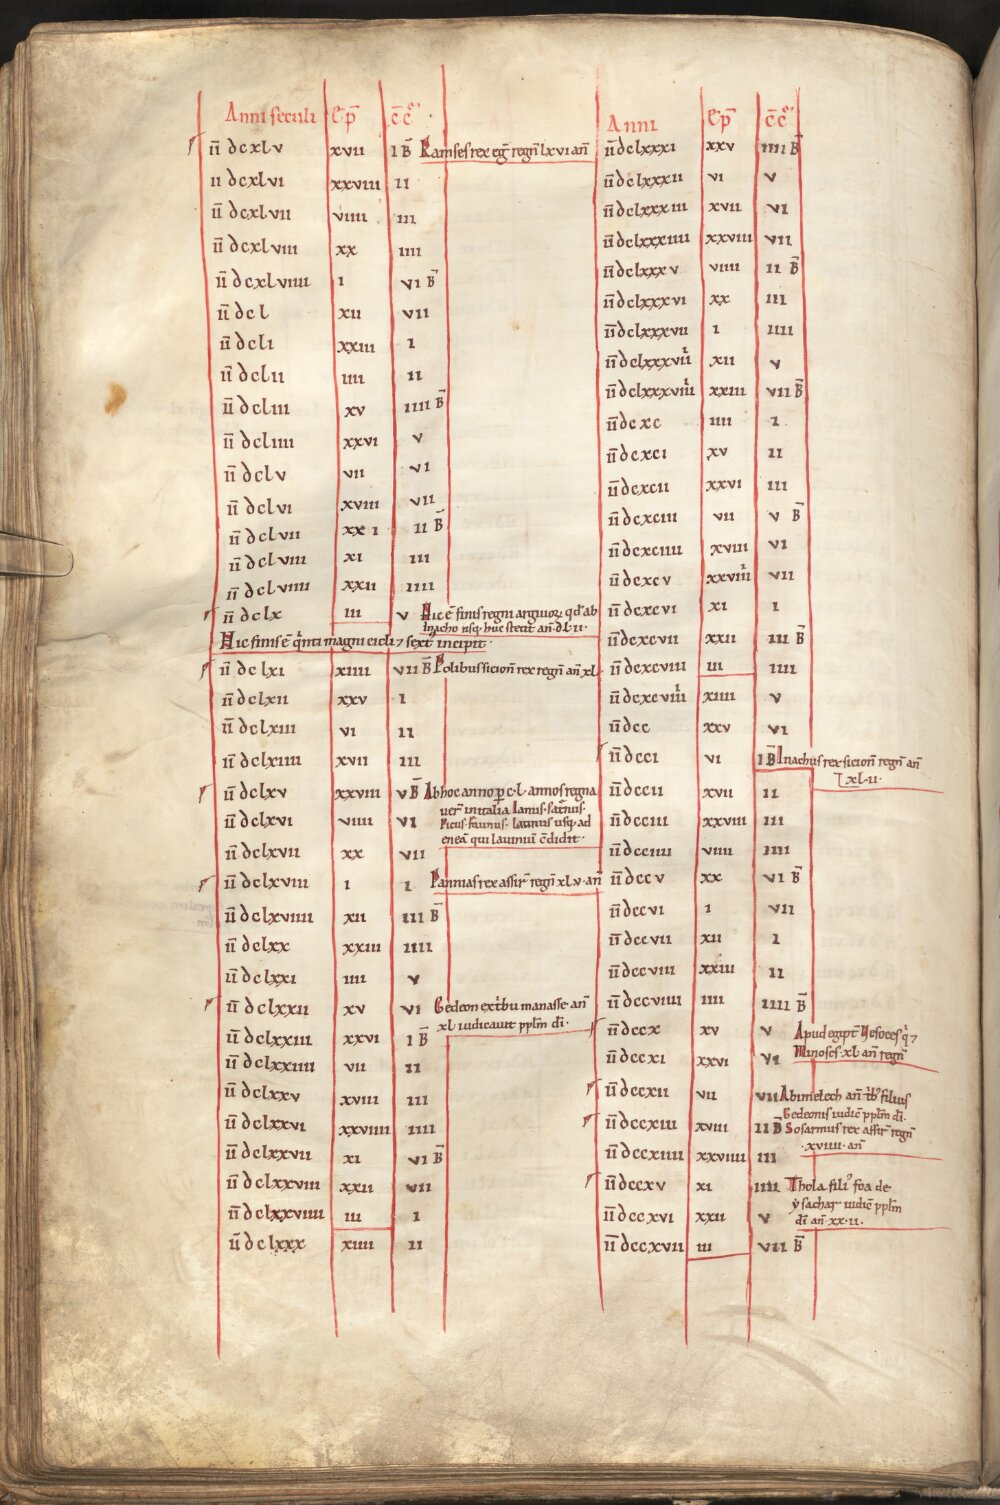 Anni seculi ep̄ c̄c̄
īī dcxlv xvii i b̄ Ramses rex eg̅ regn̅ lxvi an̅
ii dcxlvi xxviii ii
īī dcxlvii viiii iii
īī dcxlviii xx iiii
īī dcxlviiii i vi b̄
īī dcl xii vii
īī dcli xxiii i
īī dclii iiii ii
īī dcliii xv iiii b̄
īī dcliiii xxvi v
īī dclv vii vi
īī dclvi xviii vii
īī dclvii xx i ii b̄
īī dclviii xi iii
īī dclviiii xxii iiii
īī dclx iii v Hic ē finis regni argiuoꝝ qd̅ ab
Inacho usq; huc stetit an̅ · d · l · ii ·
Hic finis ē qͥnti magni cicli ⁊ sext̅ incipit ·
īī dclxi xiiii vii b̄ Polibus sicion̅ rex regn̅ an̅ xl
īī dclxii xxv i
īī dclxiii vi ii
īī dclxiiii xvii iii
īī dclxv xxviii v b̄ Ab hoc anno ꝑ c · l · annos regna
uer̅ in italia Ianus · sat̅nus ·
Picus · faunus · latinus usq; ad
eneā qui lauiniū c̄didit ·
īī dclxvi viiii vi
īī dclxvii xx vii
īī dclxviii i i Pannias rex assir̅ regn̅ xl · v · an̅
īī dclxviiii xii iii b̄
īī dclxx xxiii iiii
īī dclxxi iiii v
īī dclxxii xv vi Gedeon ex tͥbu manasse an̅
xl · iudicauit pplm̅ di̅ ·
īī dclxxiii xxvi i b̄
īī dclxxiiii vii ii
īī dclxxv xviii iii
īī dclxxvi xxviiii iiii
īī dclxxvii xi vi b̄
īī dclxxviii xxii vii
īī dclxxviiii iii i
īī dclxxx xiiii ii
Anni ep̄ c̄c̄
īī dclxxxi xxv iiii b̄
īī dclxxxii vi v
īī dclxxxiii xvii vi
īī dclxxxiiii xxviii vii
īī dclxxxv viiii ii b̄
īī dclxxxvi xx iii
īī dclxxxvii i iiii
īī dclxxxviii xii v
īī dclxxxviiii xxiii vii b̄
īī dcxc iiii i
īī dcxci xv ii
īī dcxcii xxvi iii
īī dcxciii vii v b̄
īī dcxciiii xviii vi
īī dcxcv xxviiii vii
īī dcxcvi xi i
īī dcxcvii xxii iii b̄
īī dcxcviii iii iiii
īī dcxcviiii xiiii v
īī dcc xxv vi
īī dcci vi i b̄ Inachus rex sicion̅ regn̅ an̅
xl · ii ·
īī dccii xvii ii
īī dcciii xxviii iii
īī dcciiii viiii iiii
īī dccv xx vi b̄
īī dccvi i vii
īī dccvii xii i
īī dccviii xxiii ii
īī dccviiii iiii iiii b̄
īī dccx xv v Apud egipt̅ Ysoces qͥ ⁊
Minoses · xl · an̅ regn̅
īī dccxi xxvi vi
īī dccxii vii vii Abimelech an̅ tͥb; filius
Gedeonis iudic̄ pplm̅ di̅ ·
īī dccxiii xviii ii b̄ Sosarmus rex assir̅ regn̅
· xviiii · an̅
īī dccxiiii xxviiii iii
īī dccxv xi iiii Thola fili; foa de
ẏsachar iudic̄ pplm̅
di̅ an̅ · xx · ii ·
īī dccxvi xxii v
īī dccxvii iii vii b̄